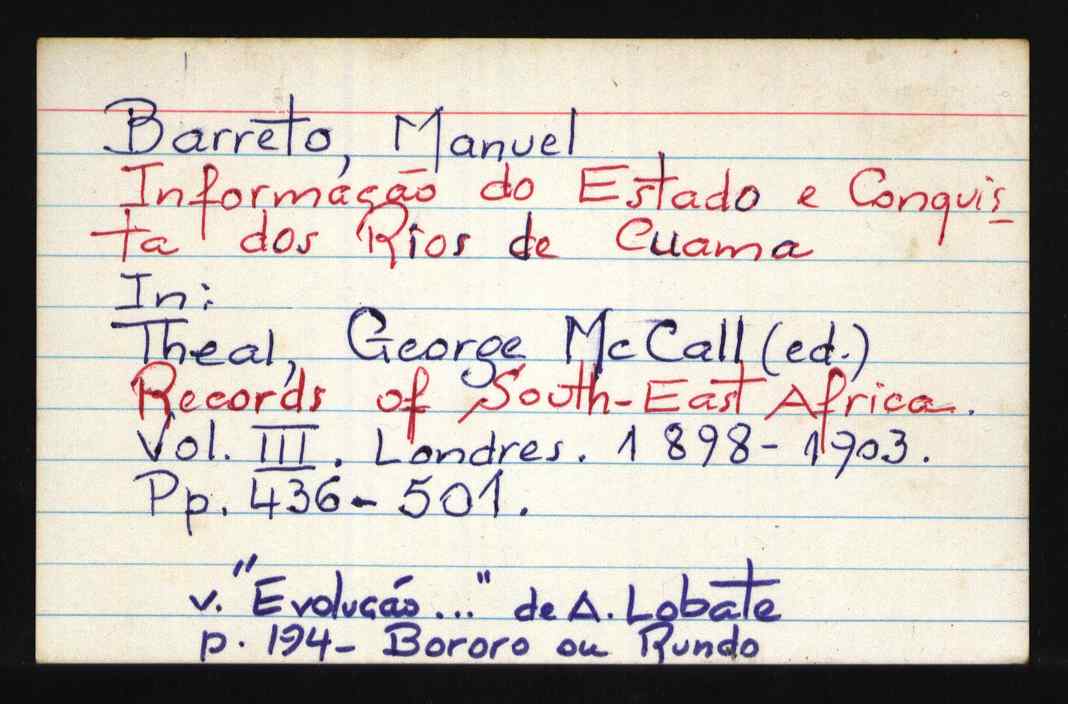 Barreto, Manuel
Informação do Estado e Conquis-
ta dos Rios de Cuama
In:
Theal, George McCall (ed.)
Records of South-East Africa.
Vol. III. Londres. 1898-1903.
Pp. 436-501.
v. "Evolução..." de A. Lobate
p. 194- Bororo ou Rundo